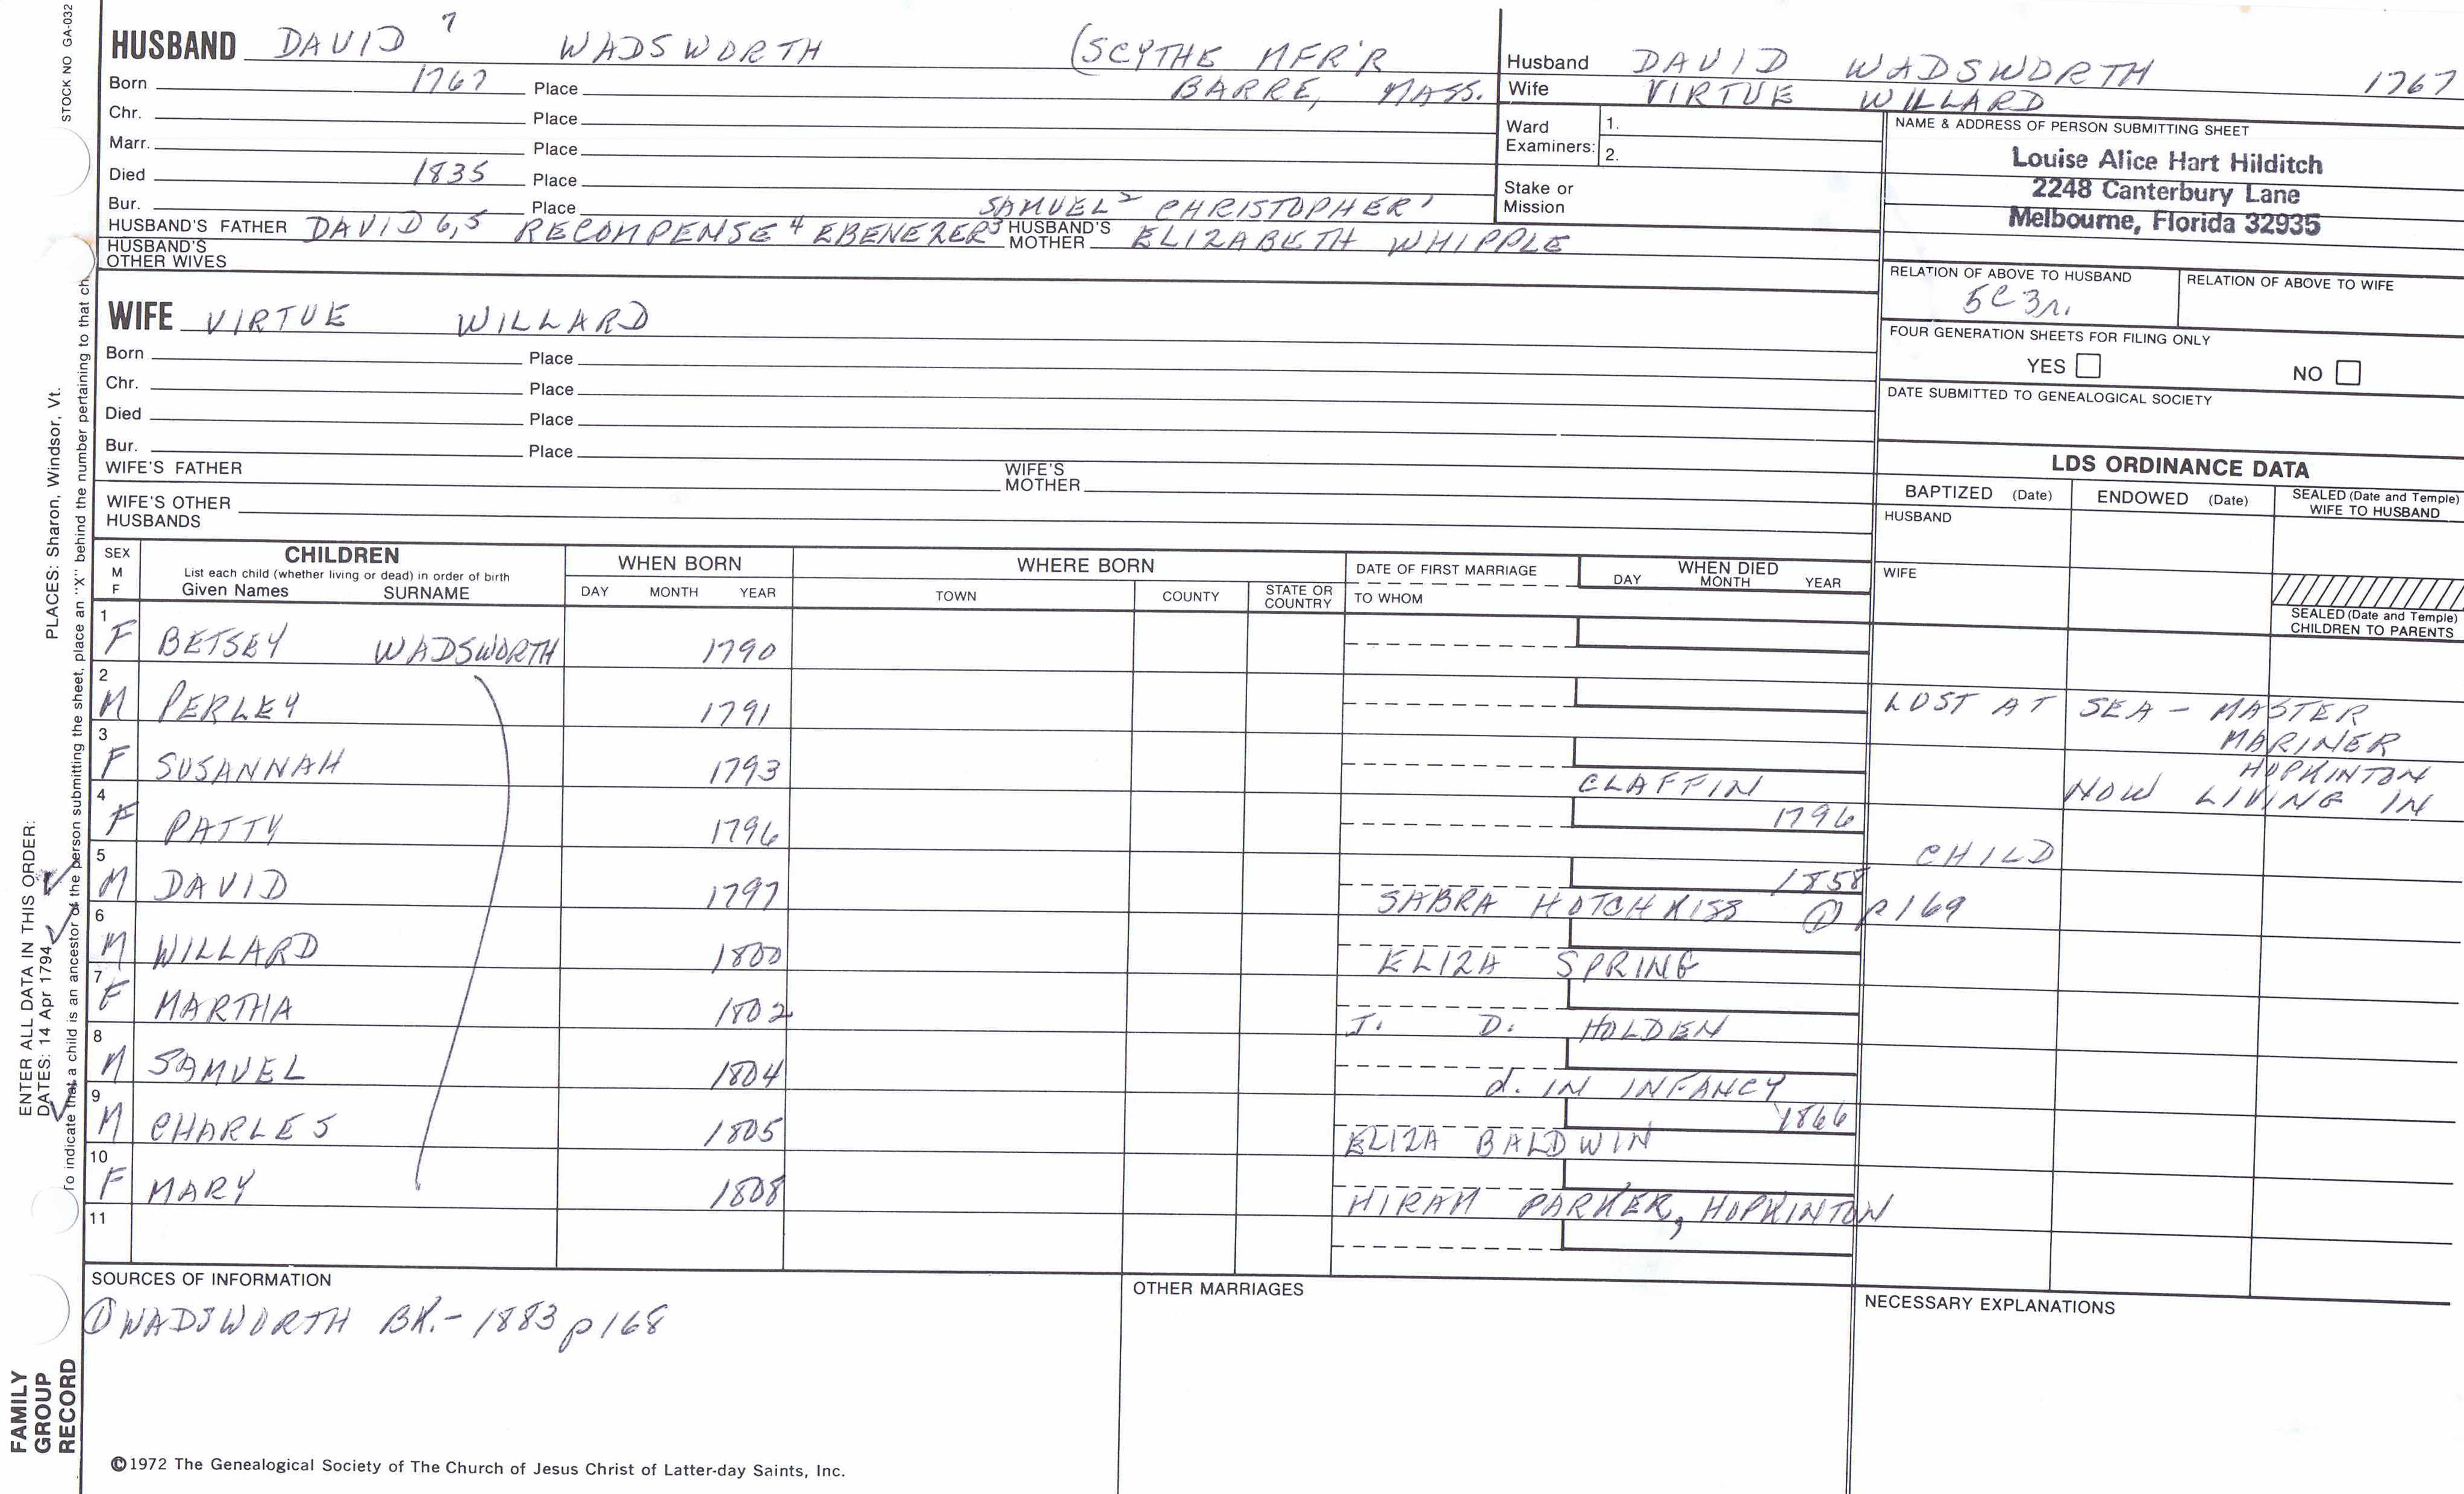 STOCK NO GA-032
HUSBAND DAVID 7 WADSWORTH (SCYTHE MFR'R
Born 1767 Place BARRE, MASS.
Chr. Place
Marr. Place
Died 1835 Place
Bur. Place SAMUEL 2 CHRISTOPHER 1
HUSBAND'S FATHER DAVID 6,5 RECOMPENSE 4 EBENEZER 3 HUSBAND'S MOTHER ELIZABETH WHIPPLE
HUSBAND'S OTHER WIVES
Husband DAVID WADSWORTH 1767
Wife VIRTUE WILLARD
Ward Examiners: 1.
2.
Stake or Mission
NAME & ADDRESS OF PERSON SUBMITTING SHEET
Louise Alice Hart Hilditch
2248 Canterbury Lane
Melbourne, Florida 32935
RELATION OF ABOVE TO HUSBAND RELATION OF ABOVE TO WIFE
5C3r.
FOUR GENERATION SHEETS FOR FILING ONLY
YES NO
DATE SUBMITTED TO GENEALOGICAL SOCIETY
WIFE VIRTUE WILLARD
Born Place
Chr. Place
Died Place
Bur. Place
WIFE'S FATHER WIFE'S MOTHER
WIFE'S OTHER HUSBANDS
LDS ORDINANCE DATA
BAPTIZED (Date) ENDOWED (Date) SEALED (Date and Temple) WIFE TO HUSBAND
HUSBAND
WIFE
SEALED (Date and Temple) CHILDREN TO PARENTS
SEX M F CHILDREN List each child (whether living or dead) in order of birth Given Names SURNAME
WHEN BORN DAY MONTH YEAR
WHERE BORN TOWN COUNTY STATE OR COUNTRY
DATE OF FIRST MARRIAGE TO WHOM
WHEN DIED DAY MONTH YEAR
1 F BETSEY WADSWORTH 1790
2 M PERLEY 1791 LOST AT SEA - MASTER MARINER
3 F SUSANNAH 1793 CLAFFIN NOW LIVING IN HOPKINTON
4 F PATTY 1796 1796 CHILD
5 M DAVID 1797 1858 SABRA HOTCHKISS ① p 169
6 M WILLARD 1800 ELIZA SPRING
7 F MARTHA 1802 J. D. HOLDEN
8 M SAMUEL 1804 d. IN INFANCY
9 M CHARLES 1805 1866 ELIZA BALDWIN
10 F MARY 1808 HIRAM PARKER, HOPKINTON
11
SOURCES OF INFORMATION
① WADSWORTH BK. - 1883 p 168
OTHER MARRIAGES
NECESSARY EXPLANATIONS
©1972 The Genealogical Society of The Church of Jesus Christ of Latter-day Saints, Inc.
FAMILY GROUP RECORD
ENTER ALL DATA IN THIS ORDER:
DATES: 14 Apr 1794
PLACES: Sharon, Windsor, Vt.
To indicate that a child is an ancestor of the person submitting the sheet, place an "X" behind the number pertaining to that ch